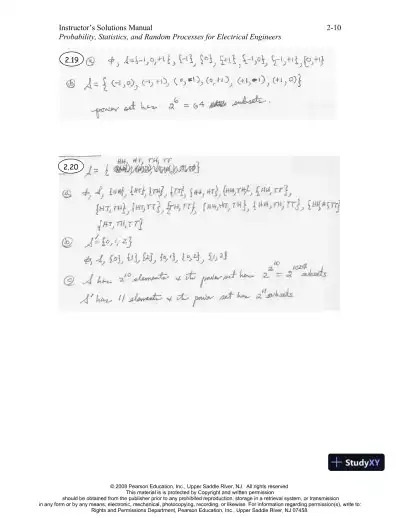 Instructor's Solutions Manual 2-10
Probability, Statistics, and Random Processes for Electrical Engineers
2.19 ⓐ ϕ, S={-1,0,+1}, {-1}, {0}, {+1}, {-1,0}, {-1,+1}, {0,+1}
ⓑ S = { (-1,0), (-1,+1), (0,-1), (0,+1), (+1,-1), (+1,0)}
power set has 2^6 = 64 subsets.
HH, HT, TH, TT
2.20 S = { }
ⓐ ϕ, S, {HH}, {HT}, {TH}, {TT}, {HH,HT}, {HH,TH}, {HH,TT},
{HT,TH}, {HT,TT}, {TH,TT}, {HH,HT,TH}, {HH,TH,TT}, {HH,HT,TT}
{HT,TH,TT}
ⓑ S'={0,1,2}
ϕ, S, {0}, {1}, {2}, {0,1}, {0,2}, {1,2}
ⓒ S has 2^10 elements & its power set has 2^2^10 = 2^1024 subsets
S' has 11 elements & its power set has 2^11 subsets
StudyXY
© 2009 Pearson Education, Inc., Upper Saddle River, NJ. All rights reserved
This material is is protected by Copyright and written permission
should be obtained from the publisher prior to any prohibited reproduction, storage in a retrieval system, or transmission
in any form or by any means, electronic, mechanical, photocopying, recording, or likewise. For information regarding permission(s), write to:
Rights and Permissions Department, Pearson Education, Inc., Upper Saddle River, NJ 07458.